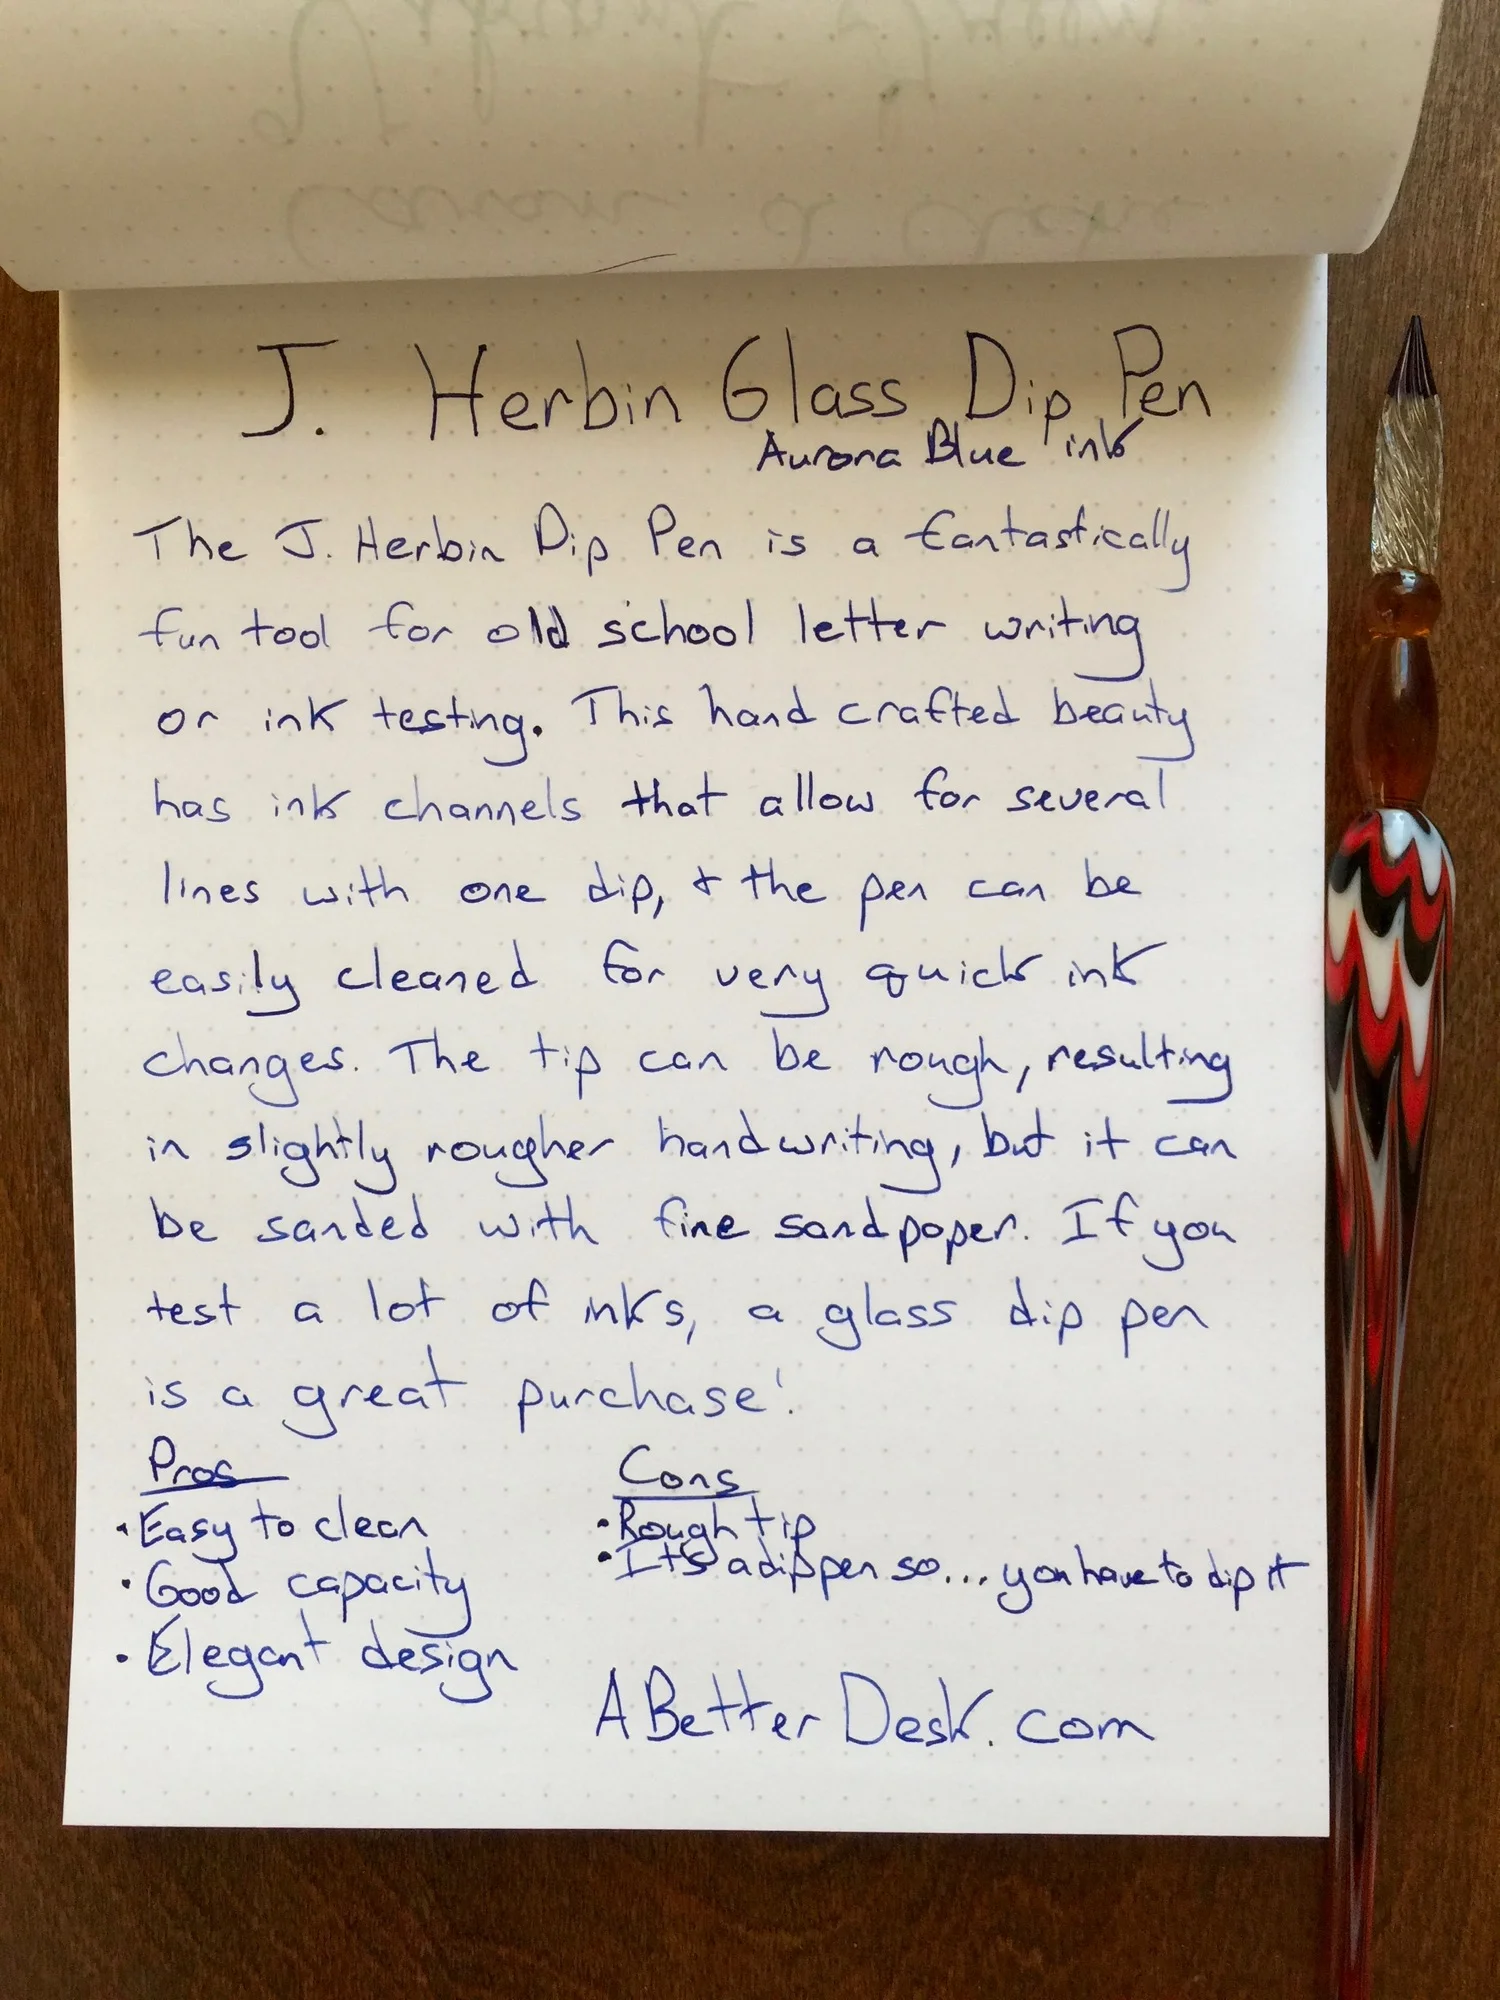 J. Herbin Glass Dip Pen
Aurora Blue ink
The J. Herbin Dip Pen is a fantastically
fun tool for old school letter writing
or ink testing. This hand crafted beauty
has ink channels that allow for several
lines with one dip, & the pen can be
easily cleaned for very quick ink
changes. The tip can be rough, resulting
in slightly rougher handwriting, but it can
be sanded with fine sandpaper. If you
test a lot of inks, a glass dip pen
is a great purchase!
Pros
• Easy to clean
• Good capacity
• Elegant design
Cons
• Rough tip
• It's a dip pen so... you have to dip it
ABetterDesk.com